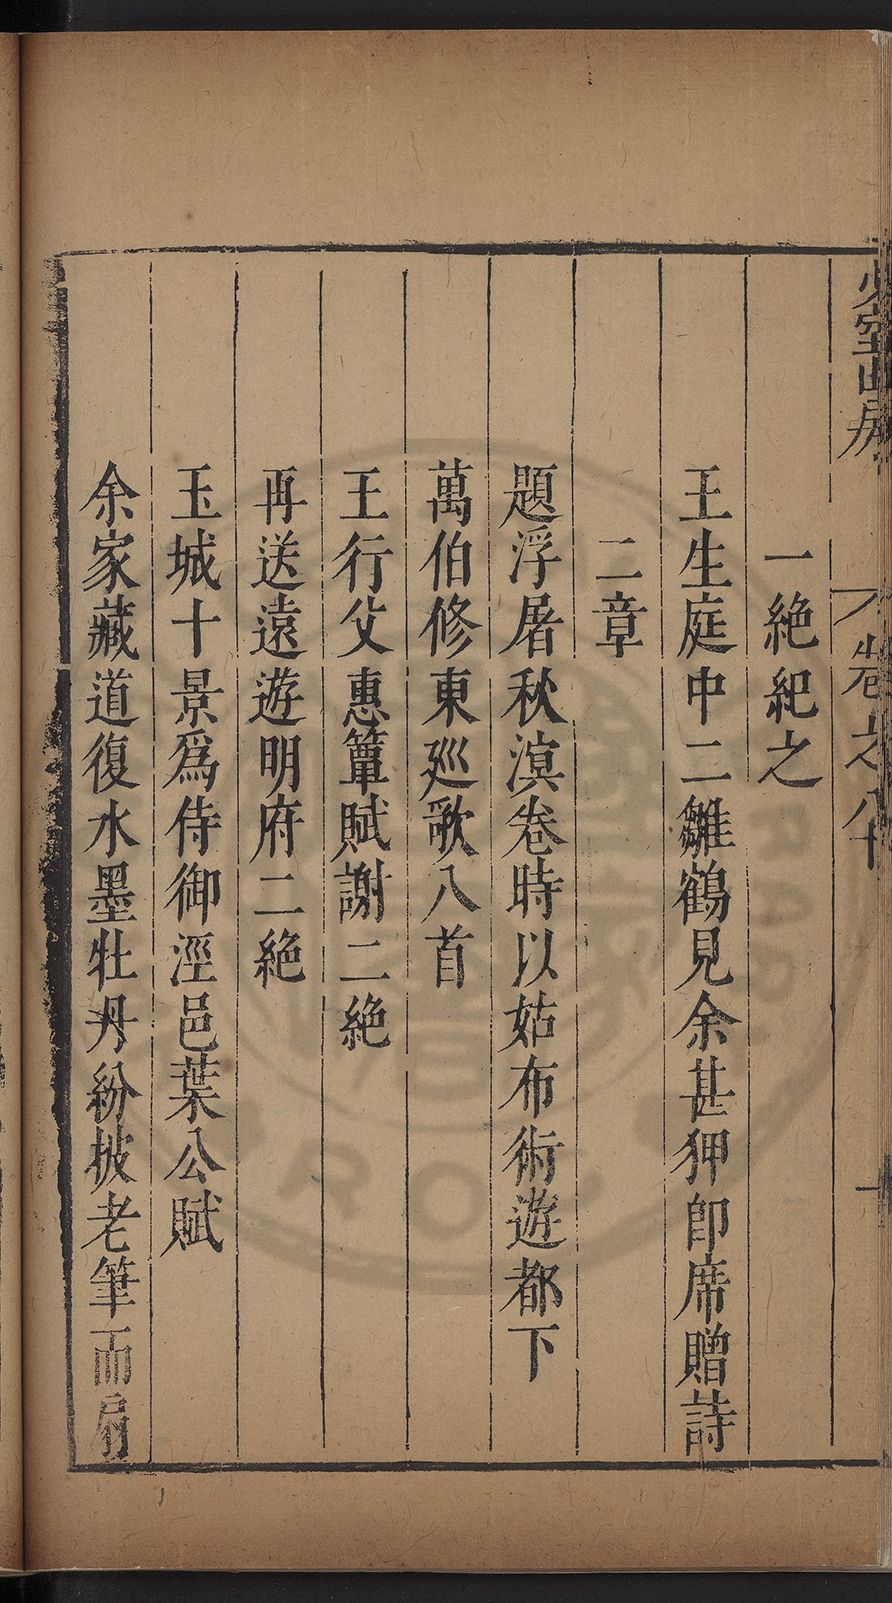 少室山房
卷之八十
一
一絶紀之
王生庭中二雛鶴見余甚狎即席贈詩
二章
題浮屠秋溟卷時以姑布術遊都下
萬伯修東廵歌八首
王行父惠簟賦謝二絶
再送遠遊明府二絶
玉城十景爲侍御涇邑葉公賦
余家藏道復水墨牡丹紛披老筆而扇